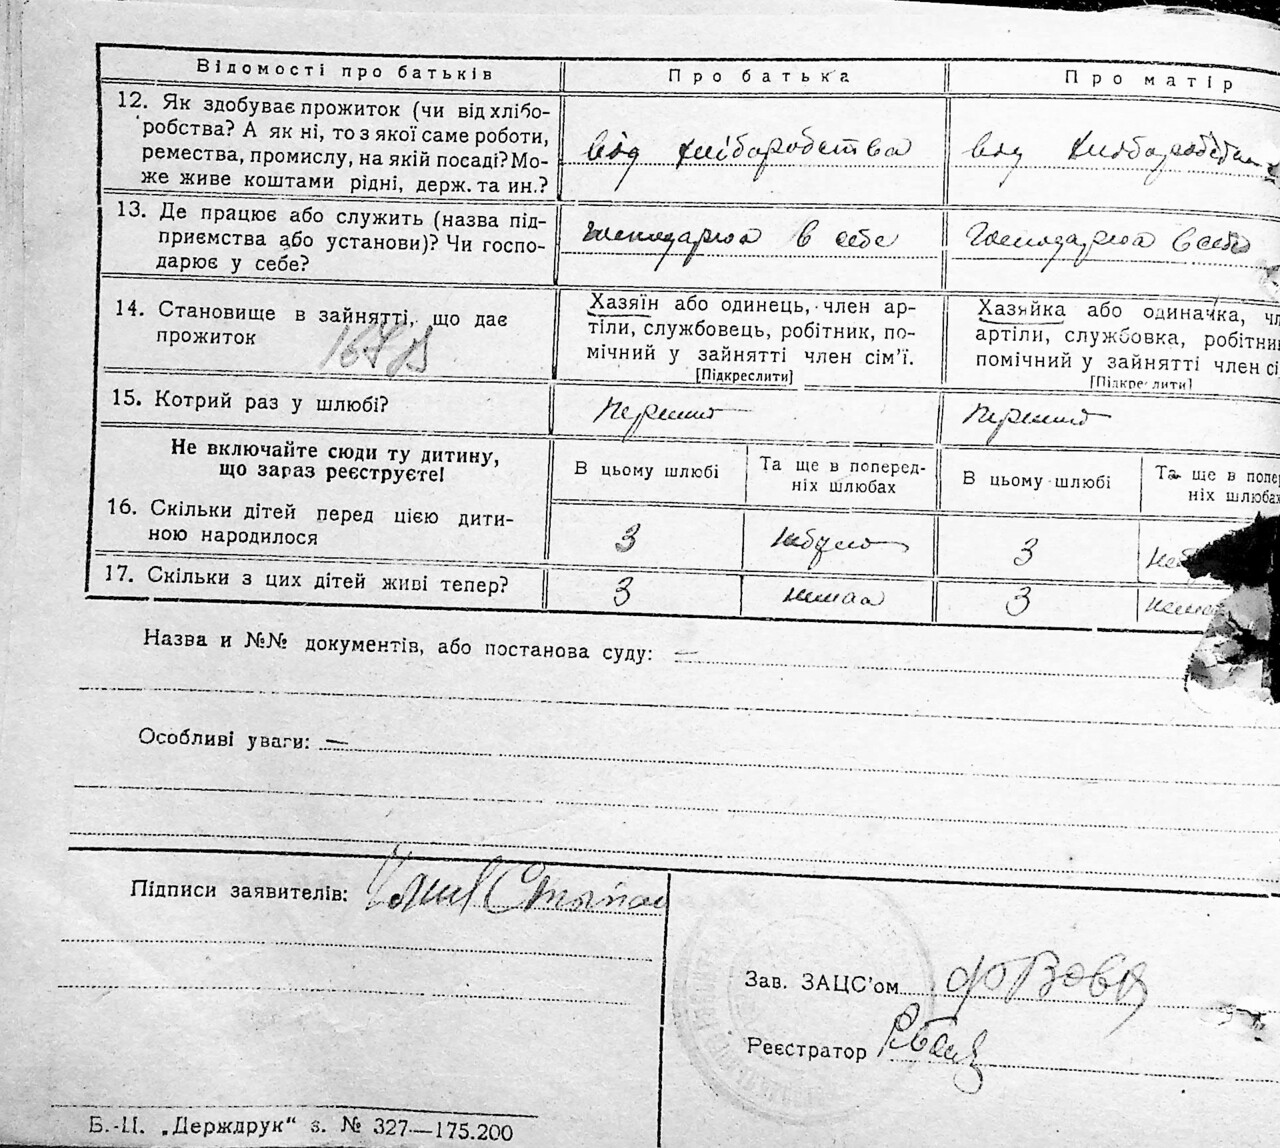 Відомості про батьків
Про батька
Про матір
12. Як здобуває прожиток (чи від хлібо-
робства? А як ні, то з якої саме роботи,
ремества, промислу, на якій посаді? Мо-
же живе коштами рідні, держ. та ин.?
від хліборобства
від хліборобства
13. Де працює або служить (назва під-
приємства або установи)? Чи госпо-
дарює у себе?
в себе
в себе
14. Становище в зайнятті, що дає
прожиток
Хазяїн або одинець, член ар-
тіли, службовець, робітник, по-
мічний у зайнятті член сім'ї.
[Підкреслити]
Хазяйка або одиначка, чл
артіли, службовка, робітни
помічний у зайнятті член сі
[Підкреслити]
15. Котрий раз у шлюбі?
перший
перший
Не включайте сюди ту дитину,
що зараз реєструєте!
В цьому шлюбі
Та ще в поперед-
ніх шлюбах
В цьому шлюбі
Та ще в попер
ніх шлюбах
16. Скільки дітей перед цією дити-
ною народилося
3
небуло
3
17. Скільки з цих дітей живі тепер?
3
немає
3
Назва и №№ документів, або постанова суду: —
Особливі уваги: —
Підписи заявителів:
Зав. ЗАЦС'ом
Реєстратор
Б.-Ц. „Держдрук“ з. № 327—175.200